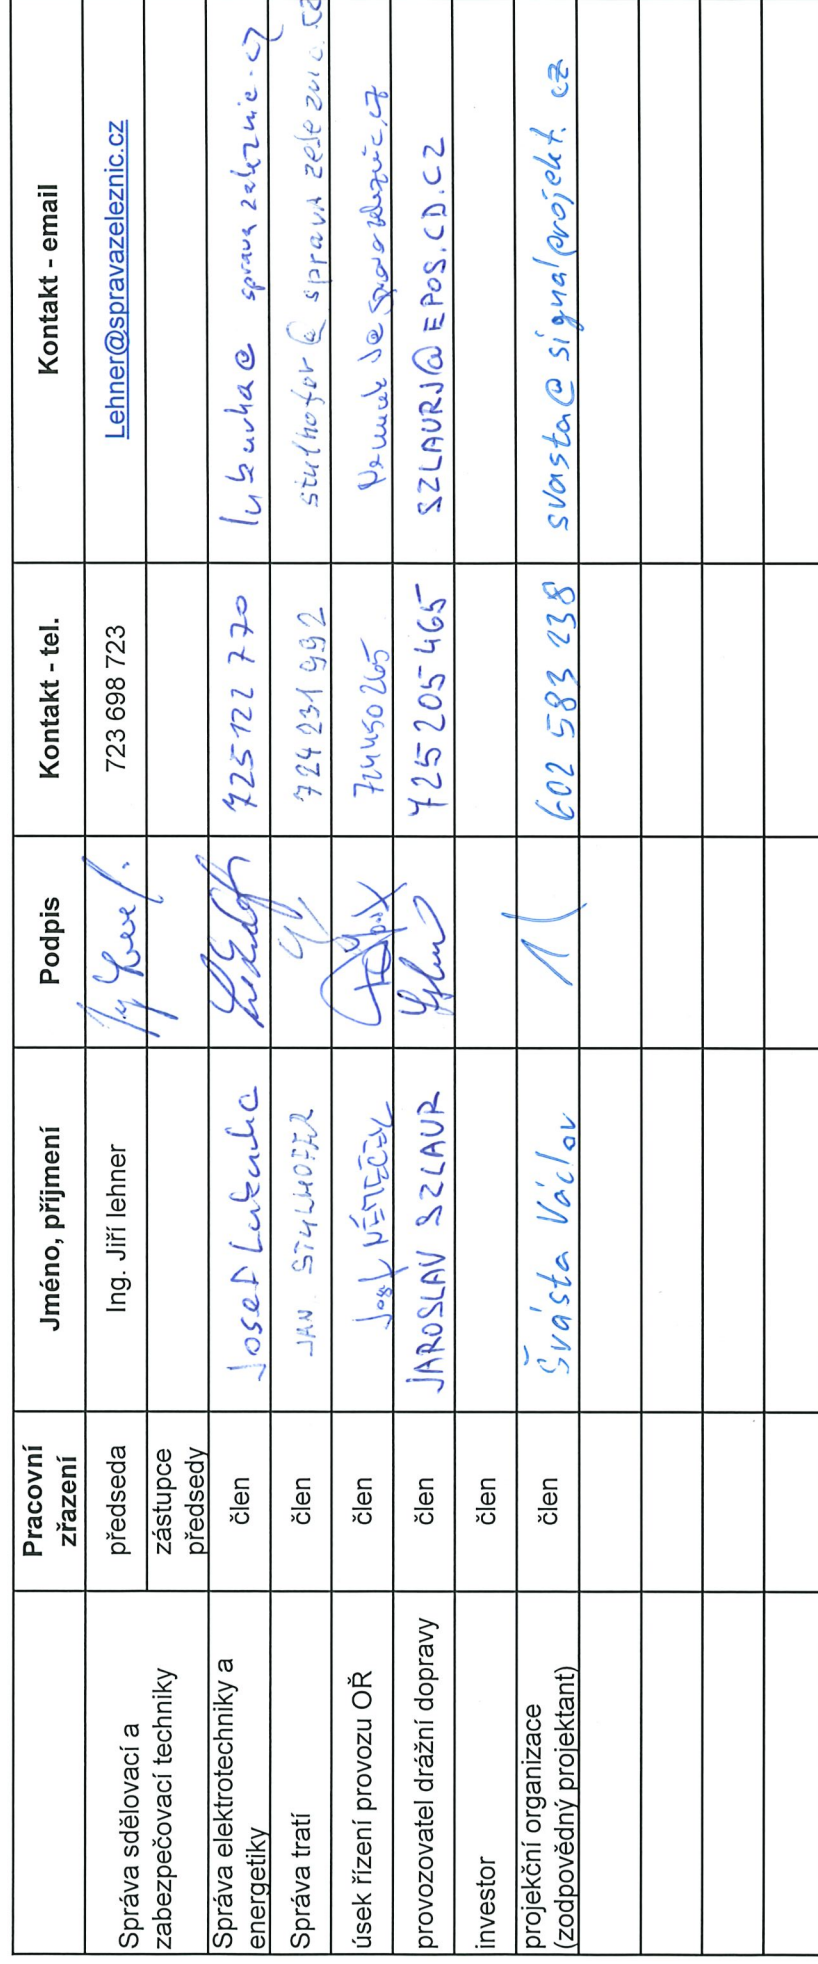 Pracovní zřazení Jméno, příjmení Podpis Kontakt - tel. Kontakt - email
Správa sdělovací a zabezpečovací techniky předseda Ing. Jiří lehner 723 698 723 Lehner@spravazeleznic.cz
zástupce předsedy
Správa elektrotechniky a energetiky člen Josef 725 122 770
Správa tratí člen JAN 724 231 992
úsek řízení provozu OŘ člen Josef NĚMEČEK 724450265
provozovatel drážní dopravy člen JAROSLAV SZLAUR 725 205 465 SZLAURJ@EPOS.CD.CZ
investor člen
projekční organizace (zodpovědný projektant) člen Švásta Václav 602 583 238 svasta@signalprojekt.cz